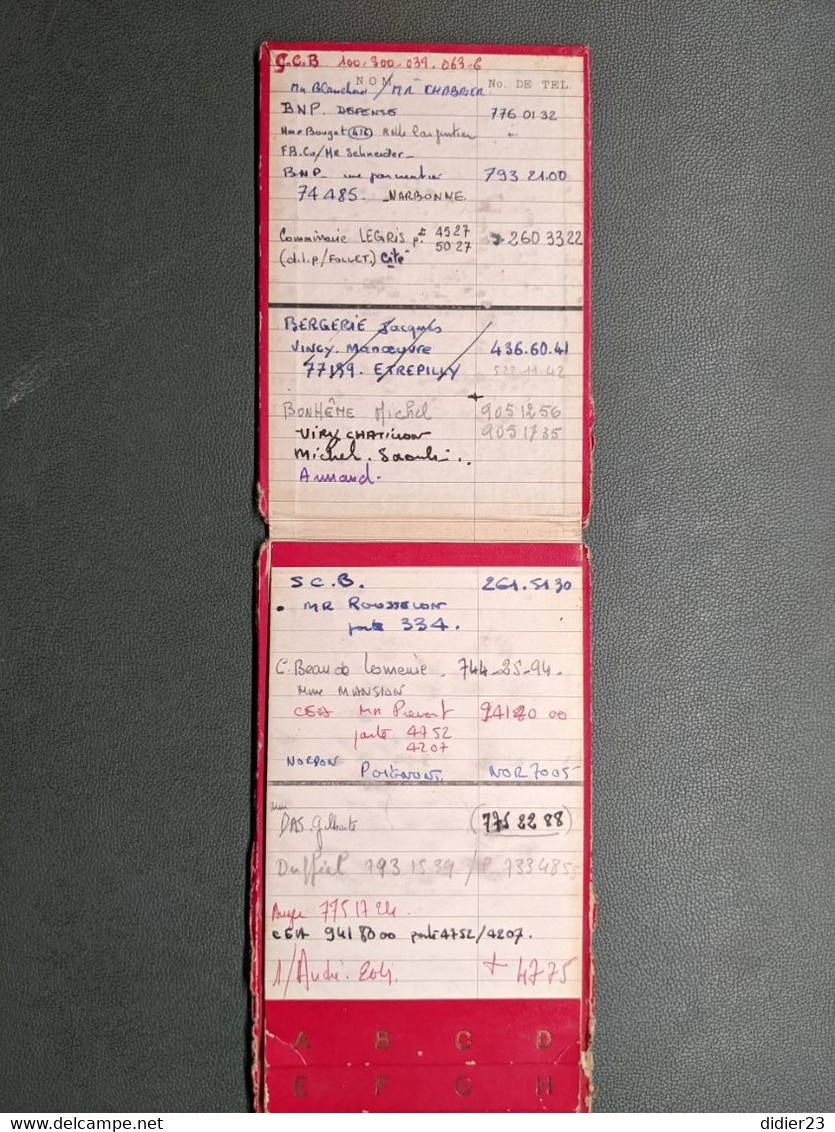 G.C.B 100-800-039.063-6
NOM No. DE TEL.
Mr Blanchon / MR CHABRIER.
BNP. DEFENSE 776 01 32
Mme Bougat (416) Melle Carpentier "
F.B. Co/MR Schneider-
BNP_ rue parmentier 793 21.00
74 485. NARBONNE.
Commissaire LEGRIS 4527 260 33 22
5027
(d.l.p/FOLLET.) Cité
BERGERIE Jacques
VINCY. Manœuvre 436.60.41
77139. ETREPILLY 522 11 42
BONHÊME Michel 905 12 56
VIRY CHATILLON 905 17 35
Michel.
Armand.
S C. B. 261.51 30
. MR ROUSSELON
poste 334.
C. Beau de Lomenie. 744_25_94.
Mme MANSION
CEA MR Prevost 941 80 00
poste 4752
4207
NORDON POIGNONT. NOR 7005
DAS. Gilberte (775 22 88)
Duffiel 793 15 39 / P. 733 48 55
775 17 24.
CEA 941 80 00 poste 4752/4207.
1/André. + 47 75
A B C D
E F G H
didier23